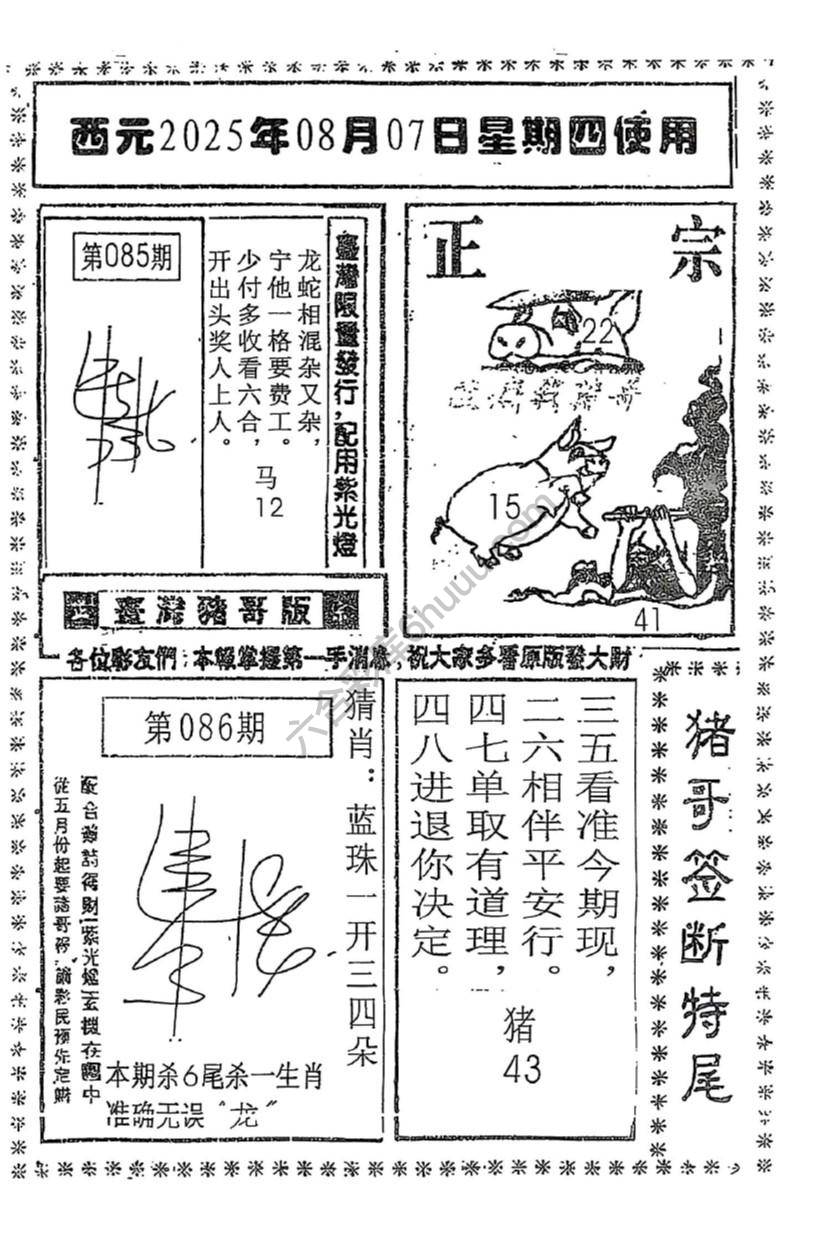 西元2025年08月07日星期四使用
第085期
臺灣限量發行，配用紫光燈
龙蛇相混杂又杂，
宁他一格要费工。
少付多收看六合，
开出头奖人上人。
马
12
正宗
22
15
41
臺灣豬哥版
各位彩友們：本報掌握第一手消息，祝大家多看原版發大財
第086期
猜肖：蓝珠一开三四朵
紫光燈玄機在圖中
從五月份起要豬哥
彩民預先定購
本期杀6尾杀一生肖
准确无误“龙”
三五看准今期现，
二六相伴平安行。
四七单取有道理，
四八进退你决定。
猪
43
猪哥签断特尾
六合彩库6huuu.com